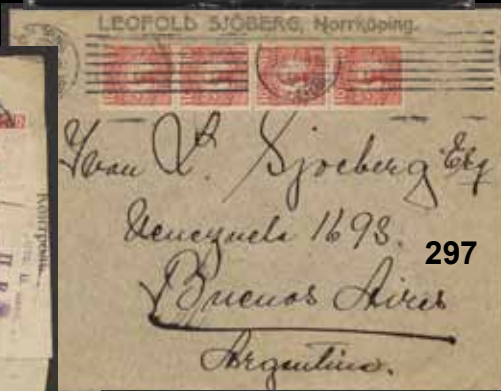 LEOPOLD SJÖBERG, Norrköping.
Ivan L. Sjoeberg Esq
Venezuela 1693.
297
Buenos Aires
Argentina.